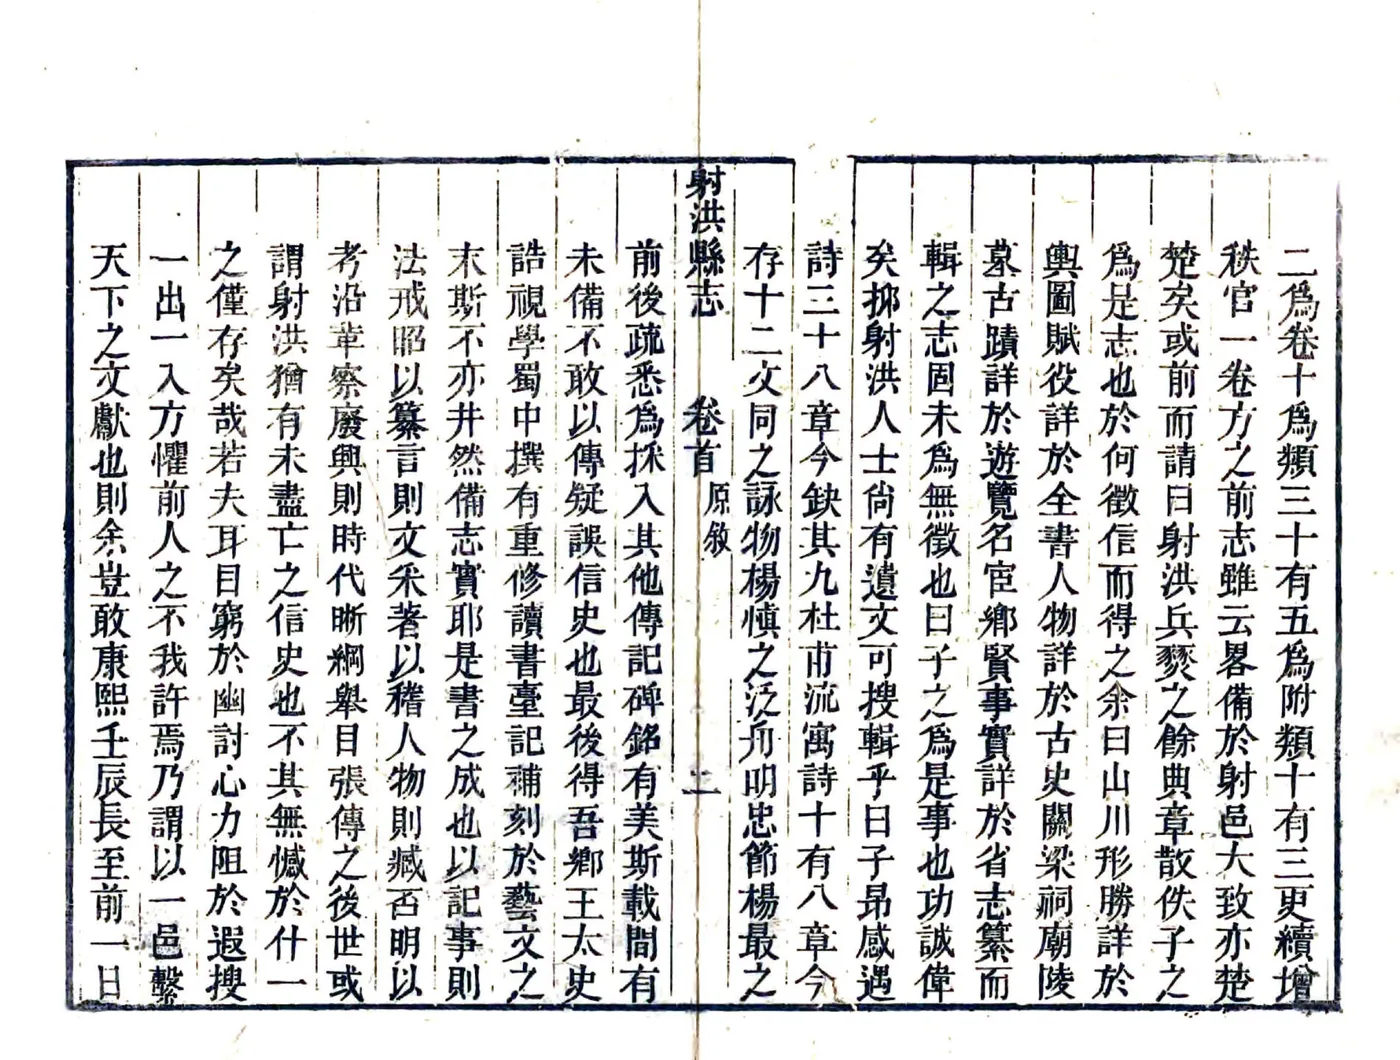 二爲卷十爲類三十有五爲附類十有三更續增
秩官一卷方之前志雖云畧備於射邑大致亦楚
楚矣或前而請曰射洪兵燹之餘典章散佚子之
爲是志也於何徵信而得之余曰山川形勝詳於
輿圖賦役詳於全書人物詳於古史關梁祠廟陵
墓古蹟詳於遊覽名宦鄉賢事實詳於省志纂而
輯之志固未爲無徵也曰子之爲是事也功誠偉
矣抑射洪人士尙有遺文可搜輯乎曰子昂感遇
詩三十八章今缺其九杜甫流寓詩十有八章今
存十二文同之詠物楊愼之泛舟明忠節楊最之
射洪縣志 卷首 原敘 二
前後疏悉爲採入其他傳記碑銘有美斯載間有
未備不敢以傳疑誤信史也最後得吾鄉王太史
誥視學蜀中撰有重修讀書臺記補刻於藝文之
末斯不亦井然備志實耶是書之成也以記事則
法戒昭以纂言則文釆著以稽人物則臧否明以
考沿革察廢興則時代晰綱舉目張傳之後世或
謂射洪猶有未盡亡之信史也不其無憾於什一
之僅存矣哉若夫耳目窮於幽討心力阻於遐搜
一出一入方懼前人之不我許焉乃謂以一邑繫
天下之文獻也則余豈敢康熙壬辰長至前一日